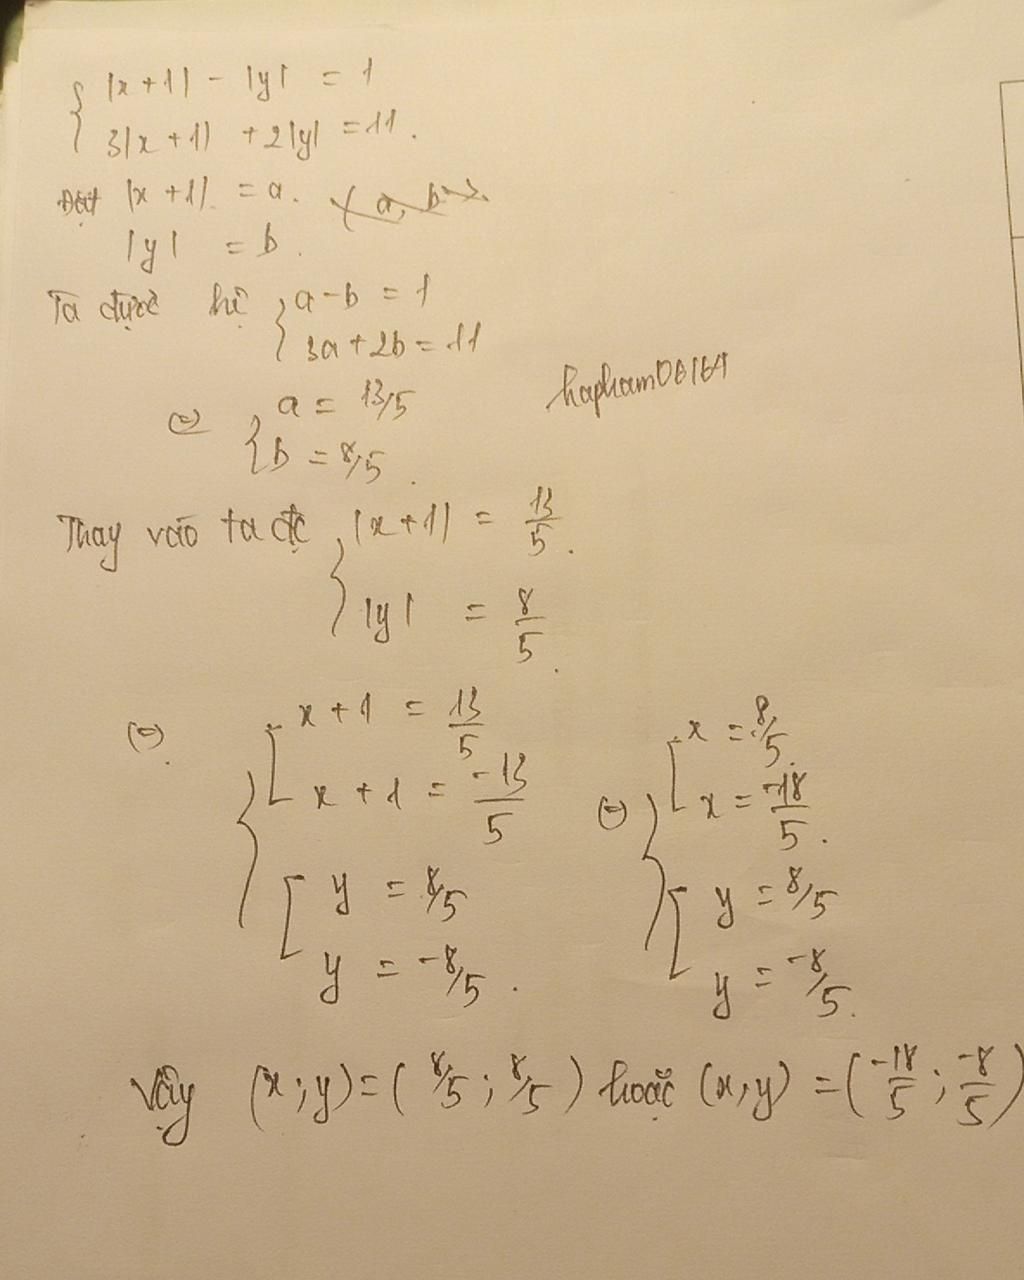 { |x+1| - |y| = 1
3|x+1| + 2|y| = 11.
Đặt |x+1| = a. (a, b
|y| = b.
Ta được hệ { a-b = 1
3a+2b = 11
hapham06164
⇔ { a = 13/5
b = 8/5.
Thay vào ta đc { |x+1| = 13/5.
|y| = 8/5.
⇔ { [ x+1 = 13/5
x+1 = -13/5
[ y = 8/5
y = -8/5.
⇔ { [ x = 8/5.
x = -18/5.
[ y = 8/5
y = -8/5.
Vậy (x;y)=(8/5; 8/5) hoặc (x;y) = (-18/5; -8/5)